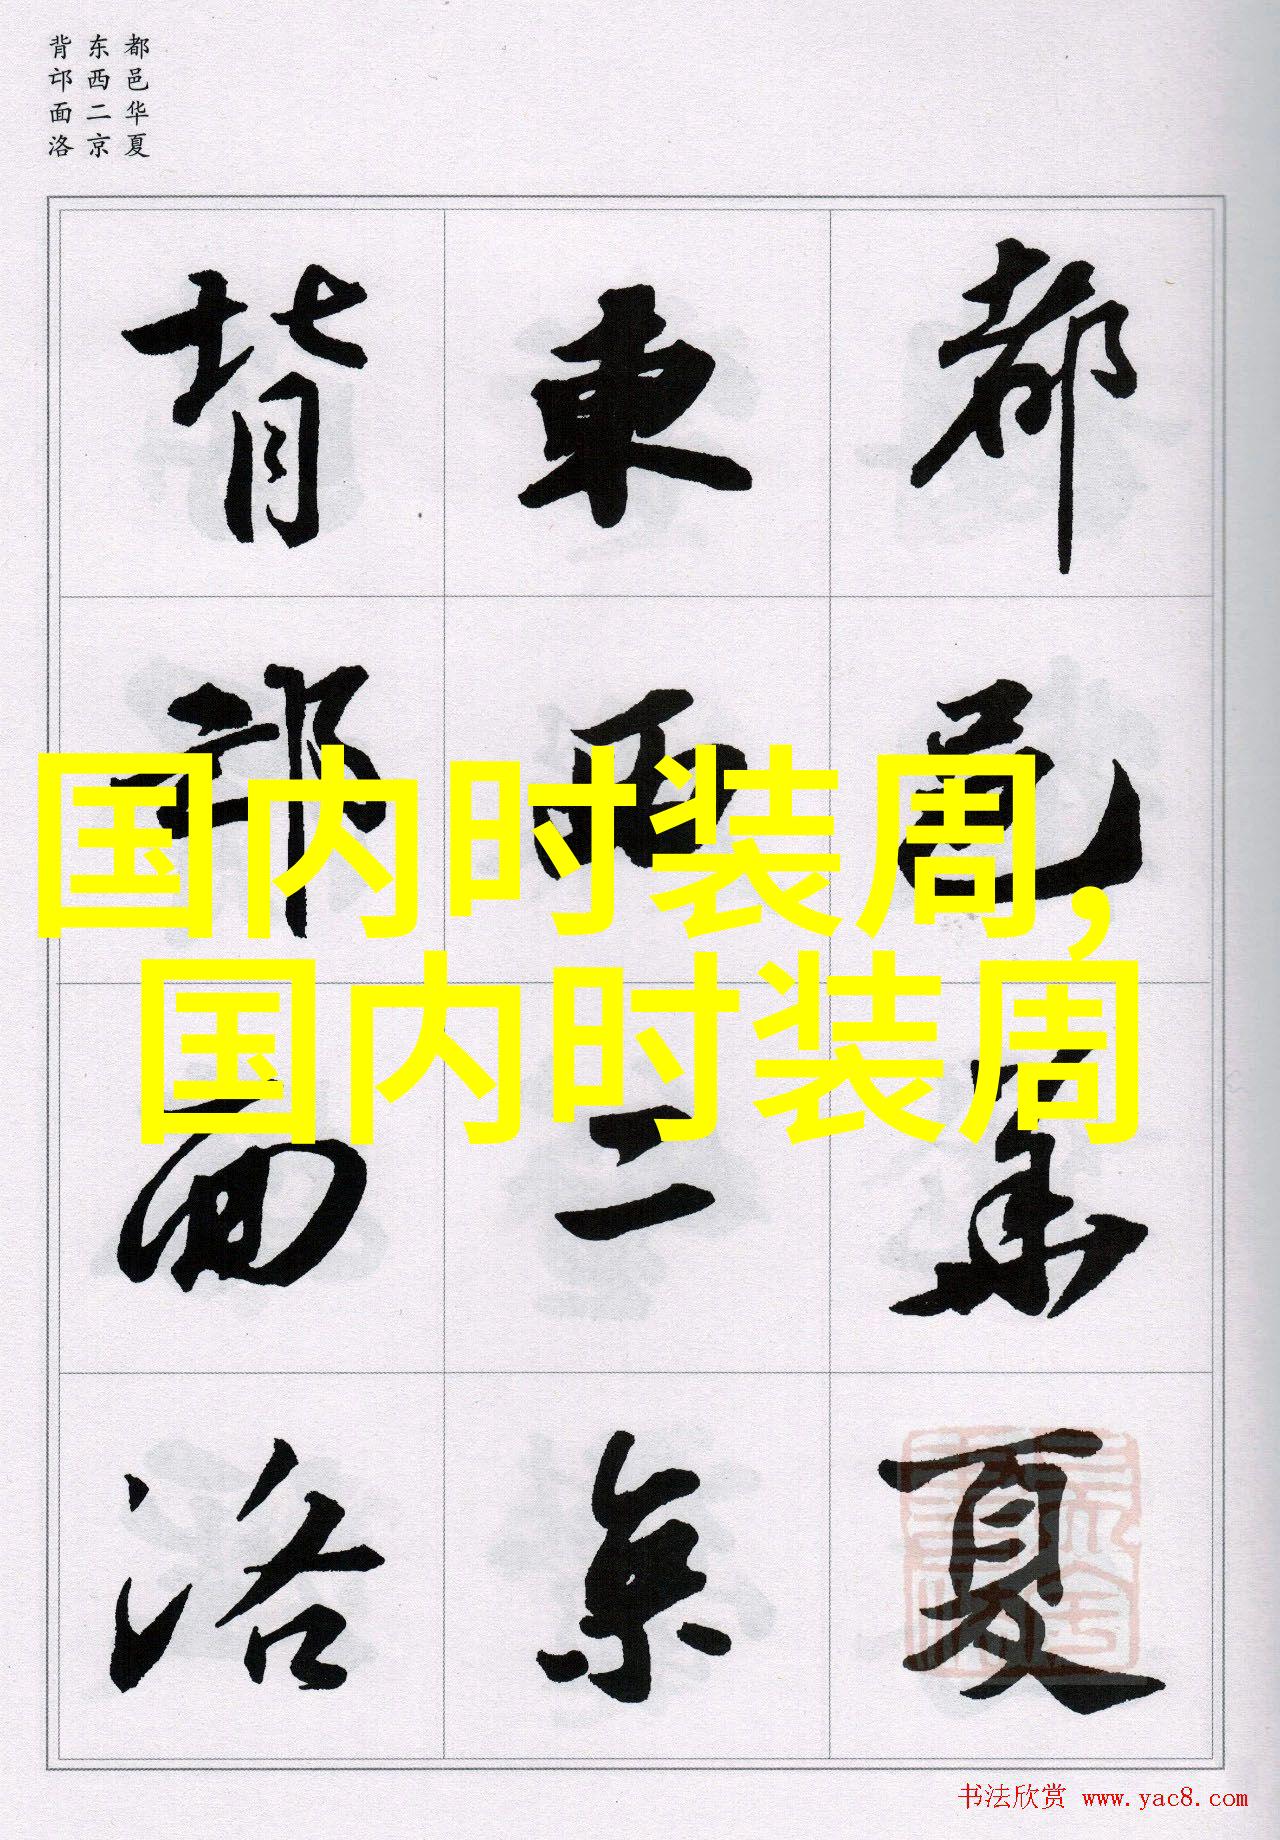 都邑华夏
东西二京
背邙面洛
都邑華夏
東西二京
背邙面洛
国内时装周,
国内时装周
书法欣赏 www.yac8.com